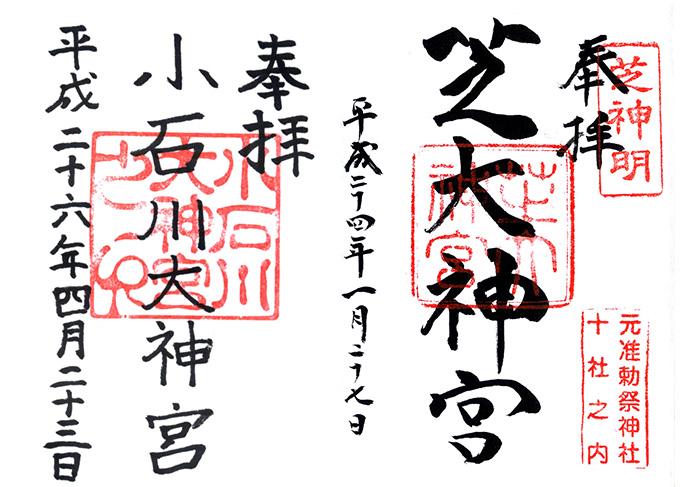 芝神明
奉拝
芝大神宮
元准勅祭神社
十社之内
平成二十四年一月二十七日
奉拝
小石川大神宮
平成二十六年四月二十三日